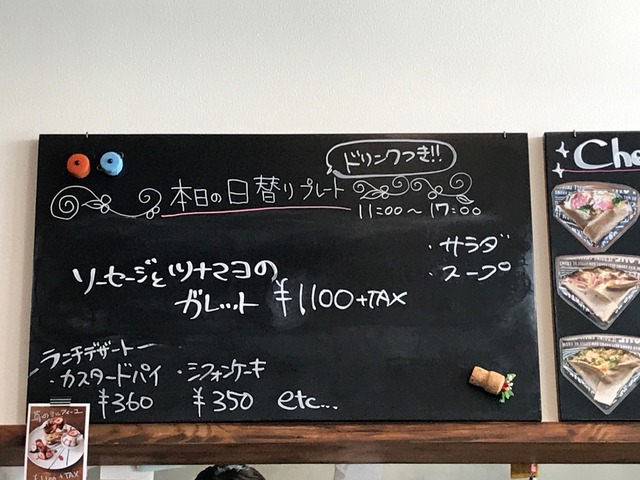 ドリンクつき!!
本日の日替りプレート
11:00～17:00
・サラダ
・スープ
ソーセージとツナマヨの
ガレット ¥1100+TAX
ランチデザート
・カスタードパイ ・シフォンケーキ
¥360 ¥350 etc...
苺のミルフィーユ
¥1100+TAX
Che